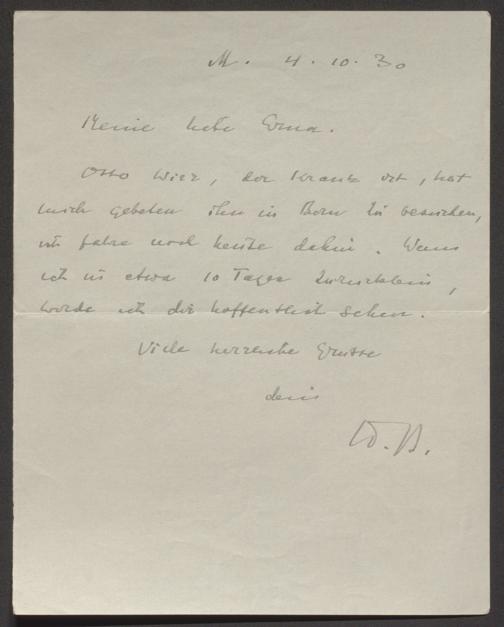 M. 4.10.30
Meine liebe Erna.
Otto Wirz, der krank ist, hat
mich gebeten ihn in Bern zu besuchen,
ich fahre noch heute dahin. Wenn
ich in etwa 10 Tagen zurück bin,
werde ich dir hoffentlich sehen.
Viele herzliche Grüsse
dein